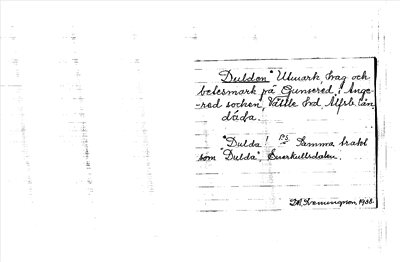 Duldan" Utmark, hag och
betesmark på Gunnered, i Ange-
-red socken, Vättle hd, Älfsb. län
dåda.
"Dulda! Ps. Samma trakt
som "Dulda, Snorkullsdalen.
1938.